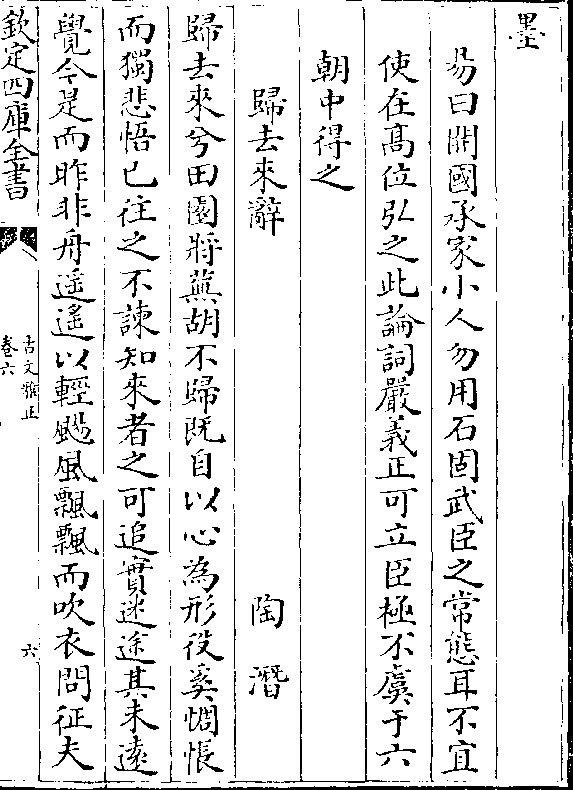 墨
易曰開國承家小人勿用石固武臣之常態耳不宜
使在髙位弘之此論詞嚴義正可立臣極不虞于六
朝中得之
歸去來辭　陶潛
歸去來兮田園將蕪胡不歸既自以心為形役奚惆悵
而獨悲悟已往之不諫知來者之可追實迷途其未遠
覺今是而昨非舟遥遥以輕颺風飄飄而吹衣問征夫
欽定四庫全書
古文雅正
卷六
六